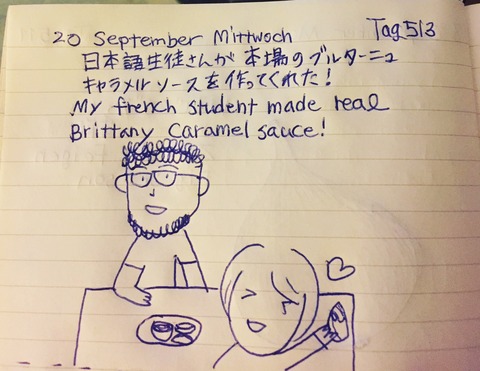 20 September Mittwoch Tag 513
日本語生徒さんが本場のブルターニュ
キャラメルソースを作ってくれた!
My french student made real
Brittany Caramel sauce!